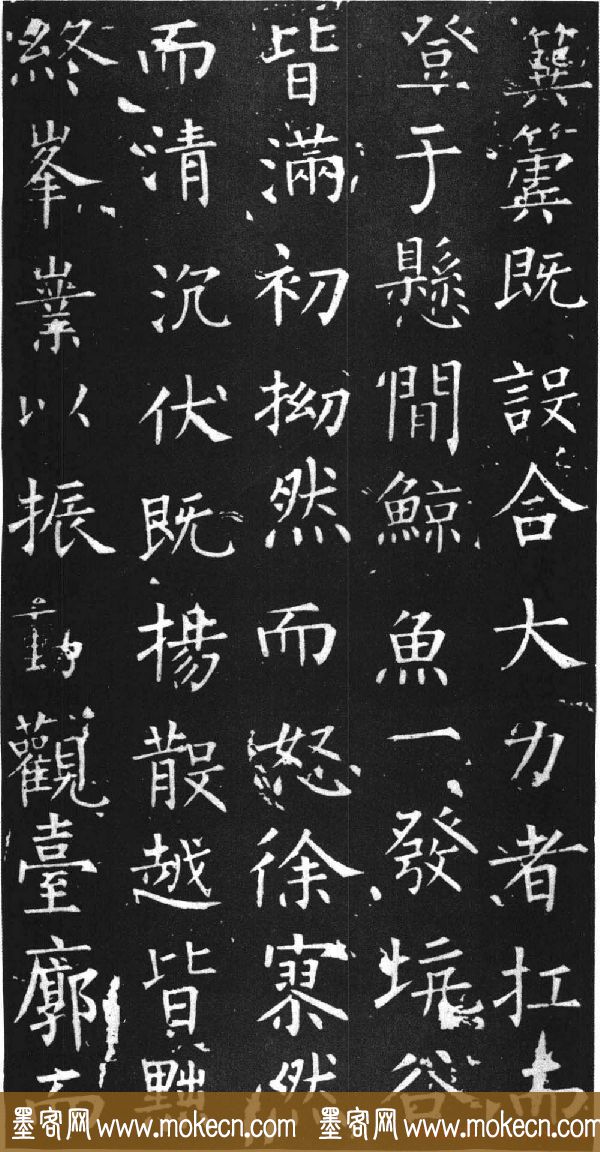 簨簴既設合大力者扛而
登于懸間鯨魚一發坑谷
皆滿初拗然而怒徐寥然
而清沉伏既揚散越皆黜
終峯業以振動觀臺廓而
墨客网 www.mokecn.com 墨客网 www.mokecn.com